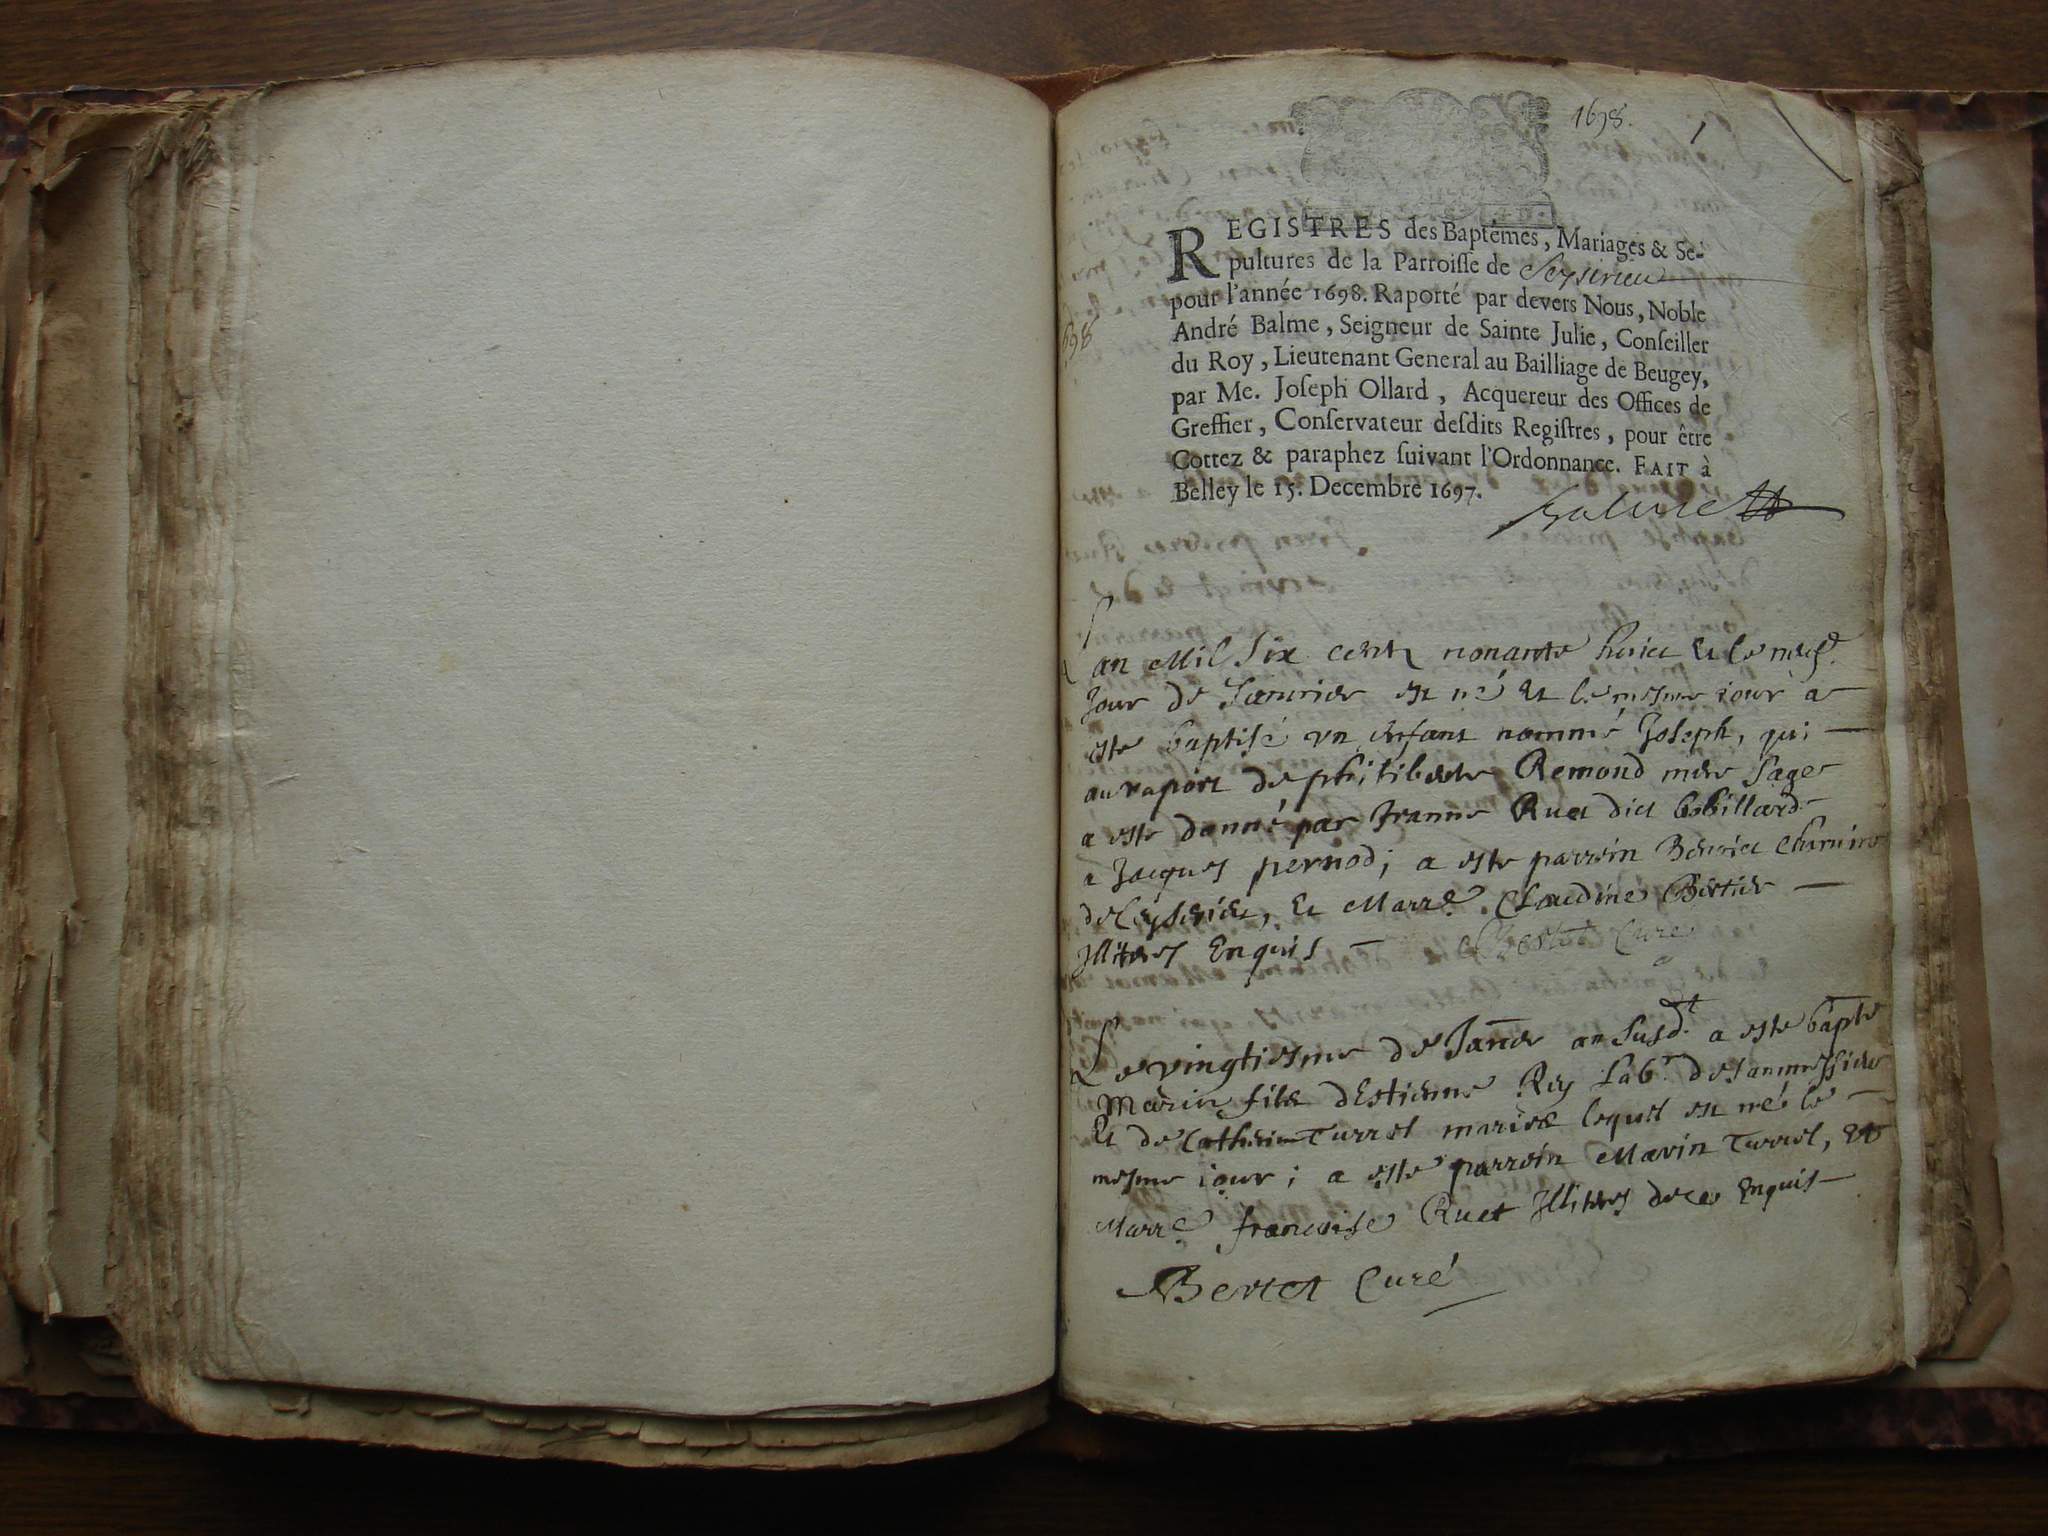 1698. 1
REGISTRES des Baptêmes, Mariages & Se-
pultures de la Parroisse de Seysirieu
pour l'année 1698. Raporté par devers Nous, Noble
698
André Balme, Seigneur de Sainte Julie, Conseiller
du Roy, Lieutenant General au Bailliage de Beugey,
par Me. Joseph Ollard, Acquereur des Offices de
Greffier, Conservateur desdits Registres, pour être
Cottez & paraphez suivant l'Ordonnance. FAIT à
Belley le 15. Decembre 1697.
Balme
Lan Mil Six cent nonante huict Et le neuf
Jour de Januier est né Et le mesme iour a
este baptisé vn enfant nommé Joseph, qui
au raport de philiberte Remond mere sage
a este donné par Jeanne Ruet dict bobillard
a Jacques pernod; a este parrein Benoict
de Ceyserieu, Et Marr.e Claudine Bertier
Illiteres Enquis Bertet Curé
Le vingtiesme de Janer an susdt. a este bapte
Marin fils dEstienne Rey Labr. de
Et de Catherine Turrel mariés lequel est né le
mesme iour; a este parrein Marin Turrel, Et
Marr.e francoise Ruet Illiteres de ce Enquis
Bertet Curé